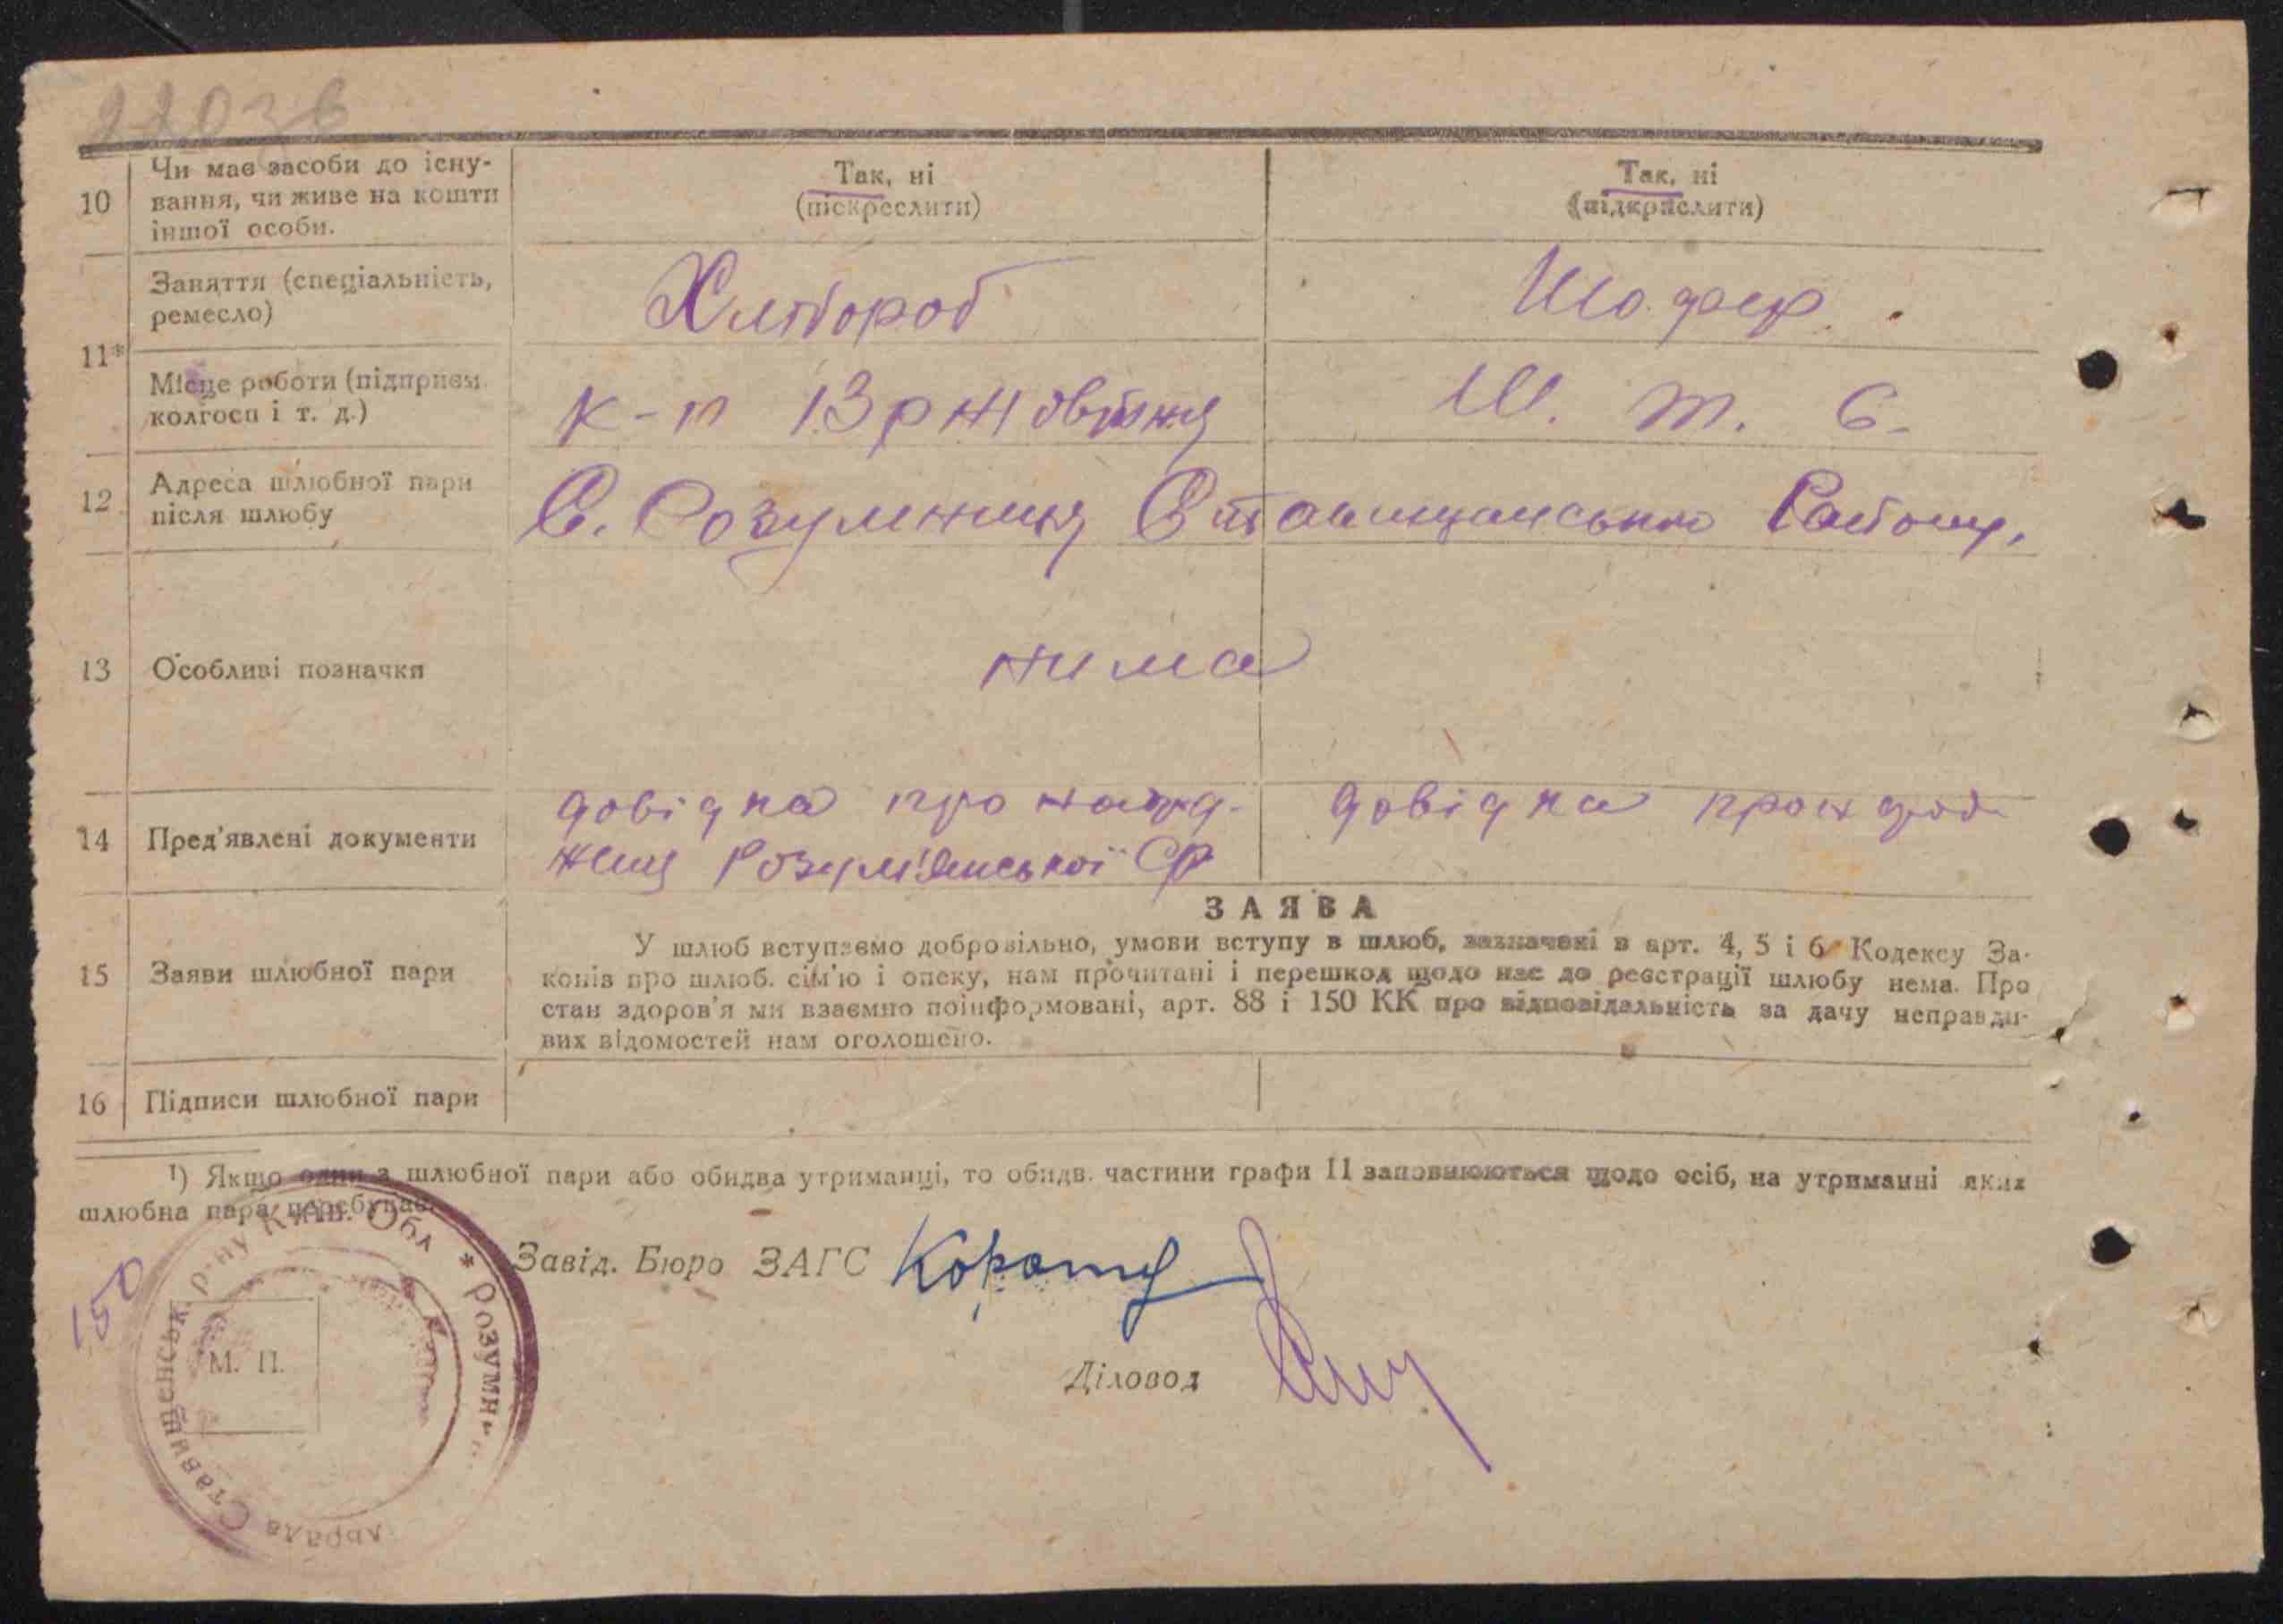 22036
10 Чи має засоби до існу-
вання, чи живе на кошти
іншої особи.
Так, ні
(піскреслити)
Так, ні
(підкрислити)
11*
Заняття (спеціальність,
ремесло)
Хлібороб
Шофер.
Місце роботи (підприєм.
колгосп і т. д.)
к-п 13 р Жовтня
Ш. Т. С.
12 Адреса шлюбної пари
після шлюбу
С. Розумниця Ставищанського Району.
13 Особливі позначки
нима
14 Пред'явлені документи
довідка про народ-
женя Розумнянської СР
довідка про народ
15 Заяви шлюбної пари
ЗАЯВА
У шлюб вступаємо добровільно, умови вступу в шлюб, зазначені в арт. 4, 5 і 6 Кодексу За-
конів про шлюб. сім'ю і опеку, нам прочитані і перешкод щодо нас до реєстрації шлюбу нема. Про
стан здоров'я ми взаємно поінформовані, арт. 88 і 150 КК про відповідальність за дачу неправди-
вих відомостей нам оголошено.
16 Підписи шлюбної пари
1) Якщо один з шлюбної пари або обидва утриманці, то обидв. частини графи 11 заповнюються щодо осіб, на утриманні яких
шлюбна пара перебуває.
150
Ставищенськ. р-ну Київ. Обл * Розумн
М. П.
Завід. Бюро ЗАГС
Діловод